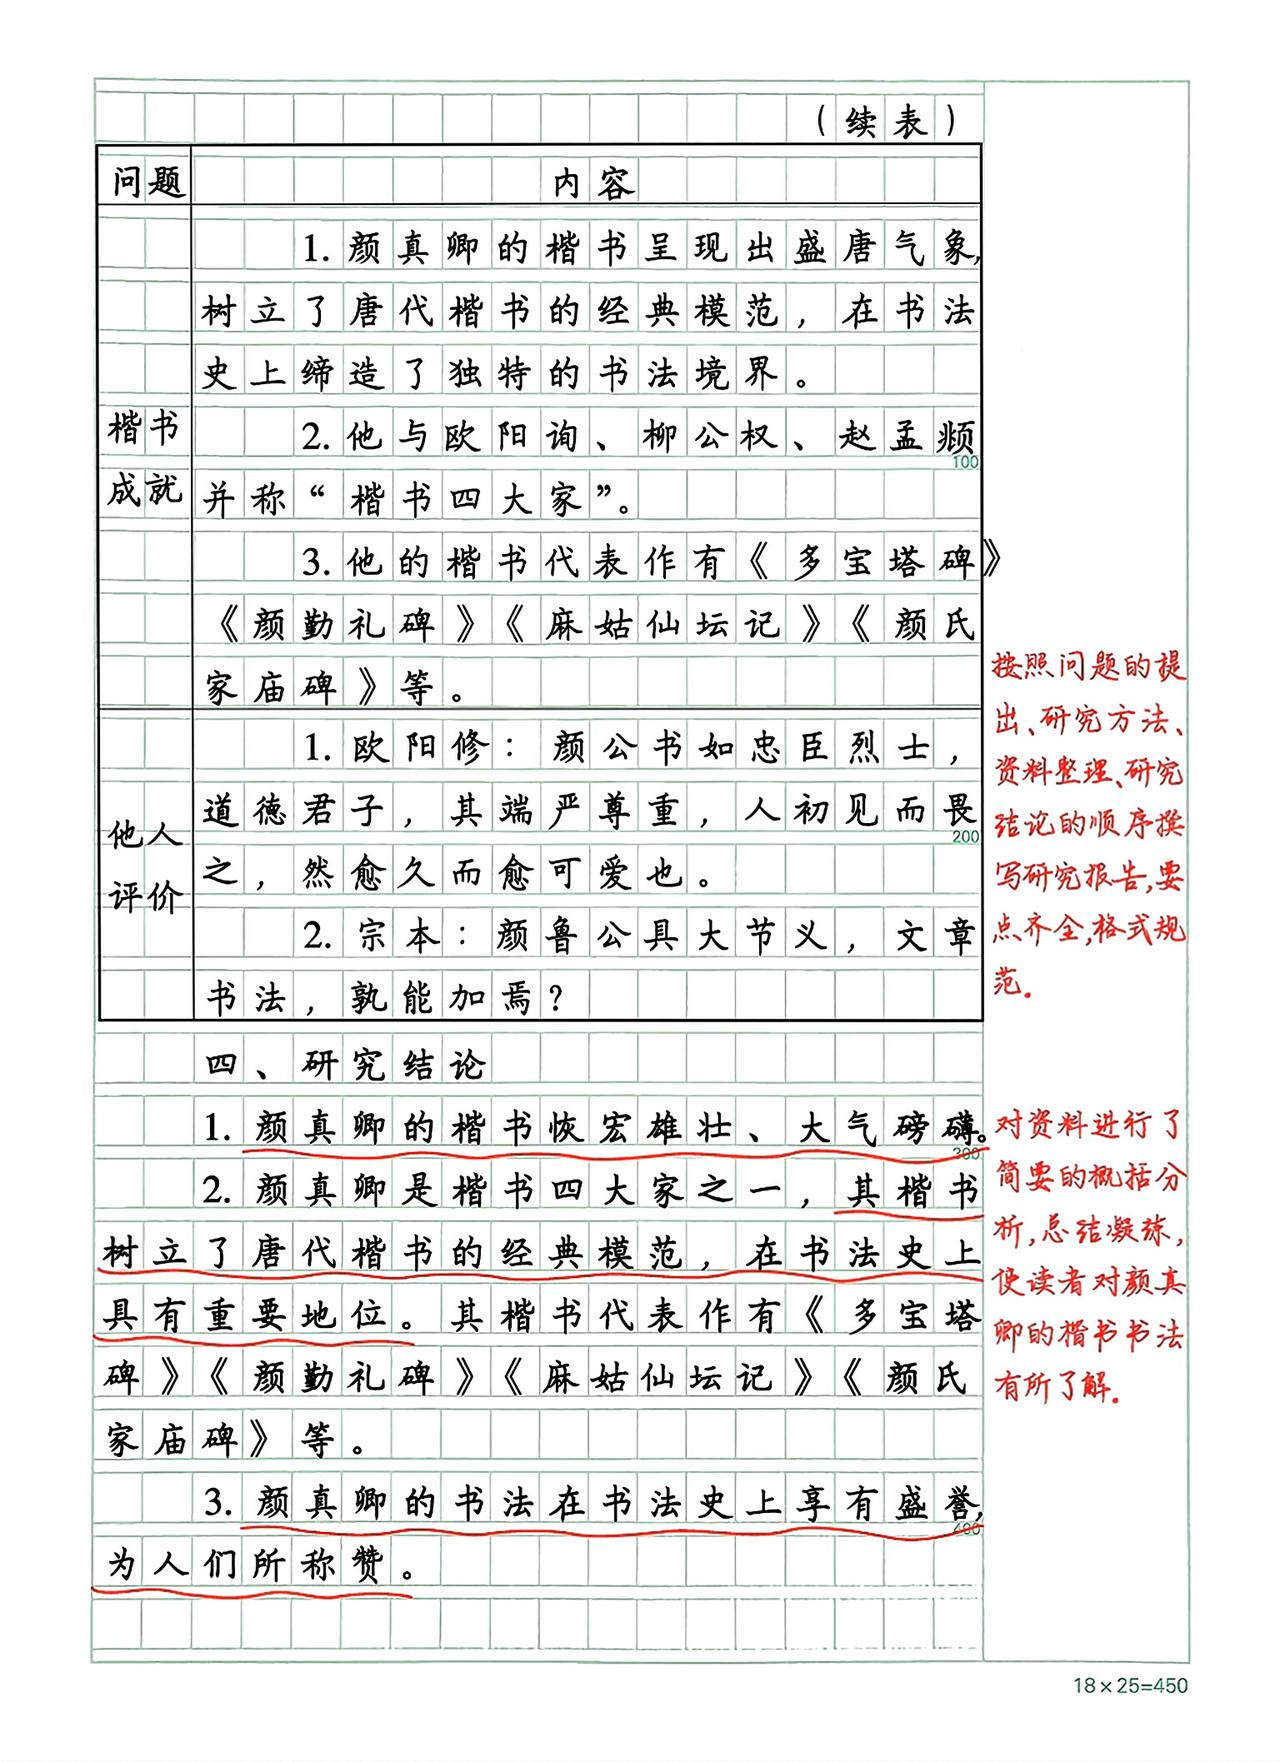 （续表）
问题 内容
1. 颜真卿的楷书呈现出盛唐气象,
树立了唐代楷书的经典模范，在书法
史上缔造了独特的书法境界。
楷书
成就
2. 他与欧阳询、柳公权、赵孟𫖯
100
并称“楷书四大家”。
3. 他的楷书代表作有《多宝塔碑》
《颜勤礼碑》《麻姑仙坛记》《颜氏
家庙碑》等。
他人
评价
1. 欧阳修：颜公书如忠臣烈士，
道德君子，其端严尊重，人初见而畏
200
之，然愈久而愈可爱也。
2. 宗本：颜鲁公具大节义，文章
书法，孰能加焉？
四、研究结论
1. 颜真卿的楷书恢宏雄壮、大气磅礴。
300
2. 颜真卿是楷书四大家之一，其楷书
树立了唐代楷书的经典模范，在书法史上
具有重要地位。其楷书代表作有《多宝塔
碑》《颜勤礼碑》《麻姑仙坛记》《颜氏
家庙碑》等。
3. 颜真卿的书法在书法史上享有盛誉,
400
为人们所称赞。
按照问题的提
出、研究方法、
资料整理、研究
结论的顺序撰
写研究报告,要
点齐全,格式规
范.
对资料进行了
简要的概括分
析,总结凝练,
使读者对颜真
卿的楷书书法
有所了解.
18×25=450